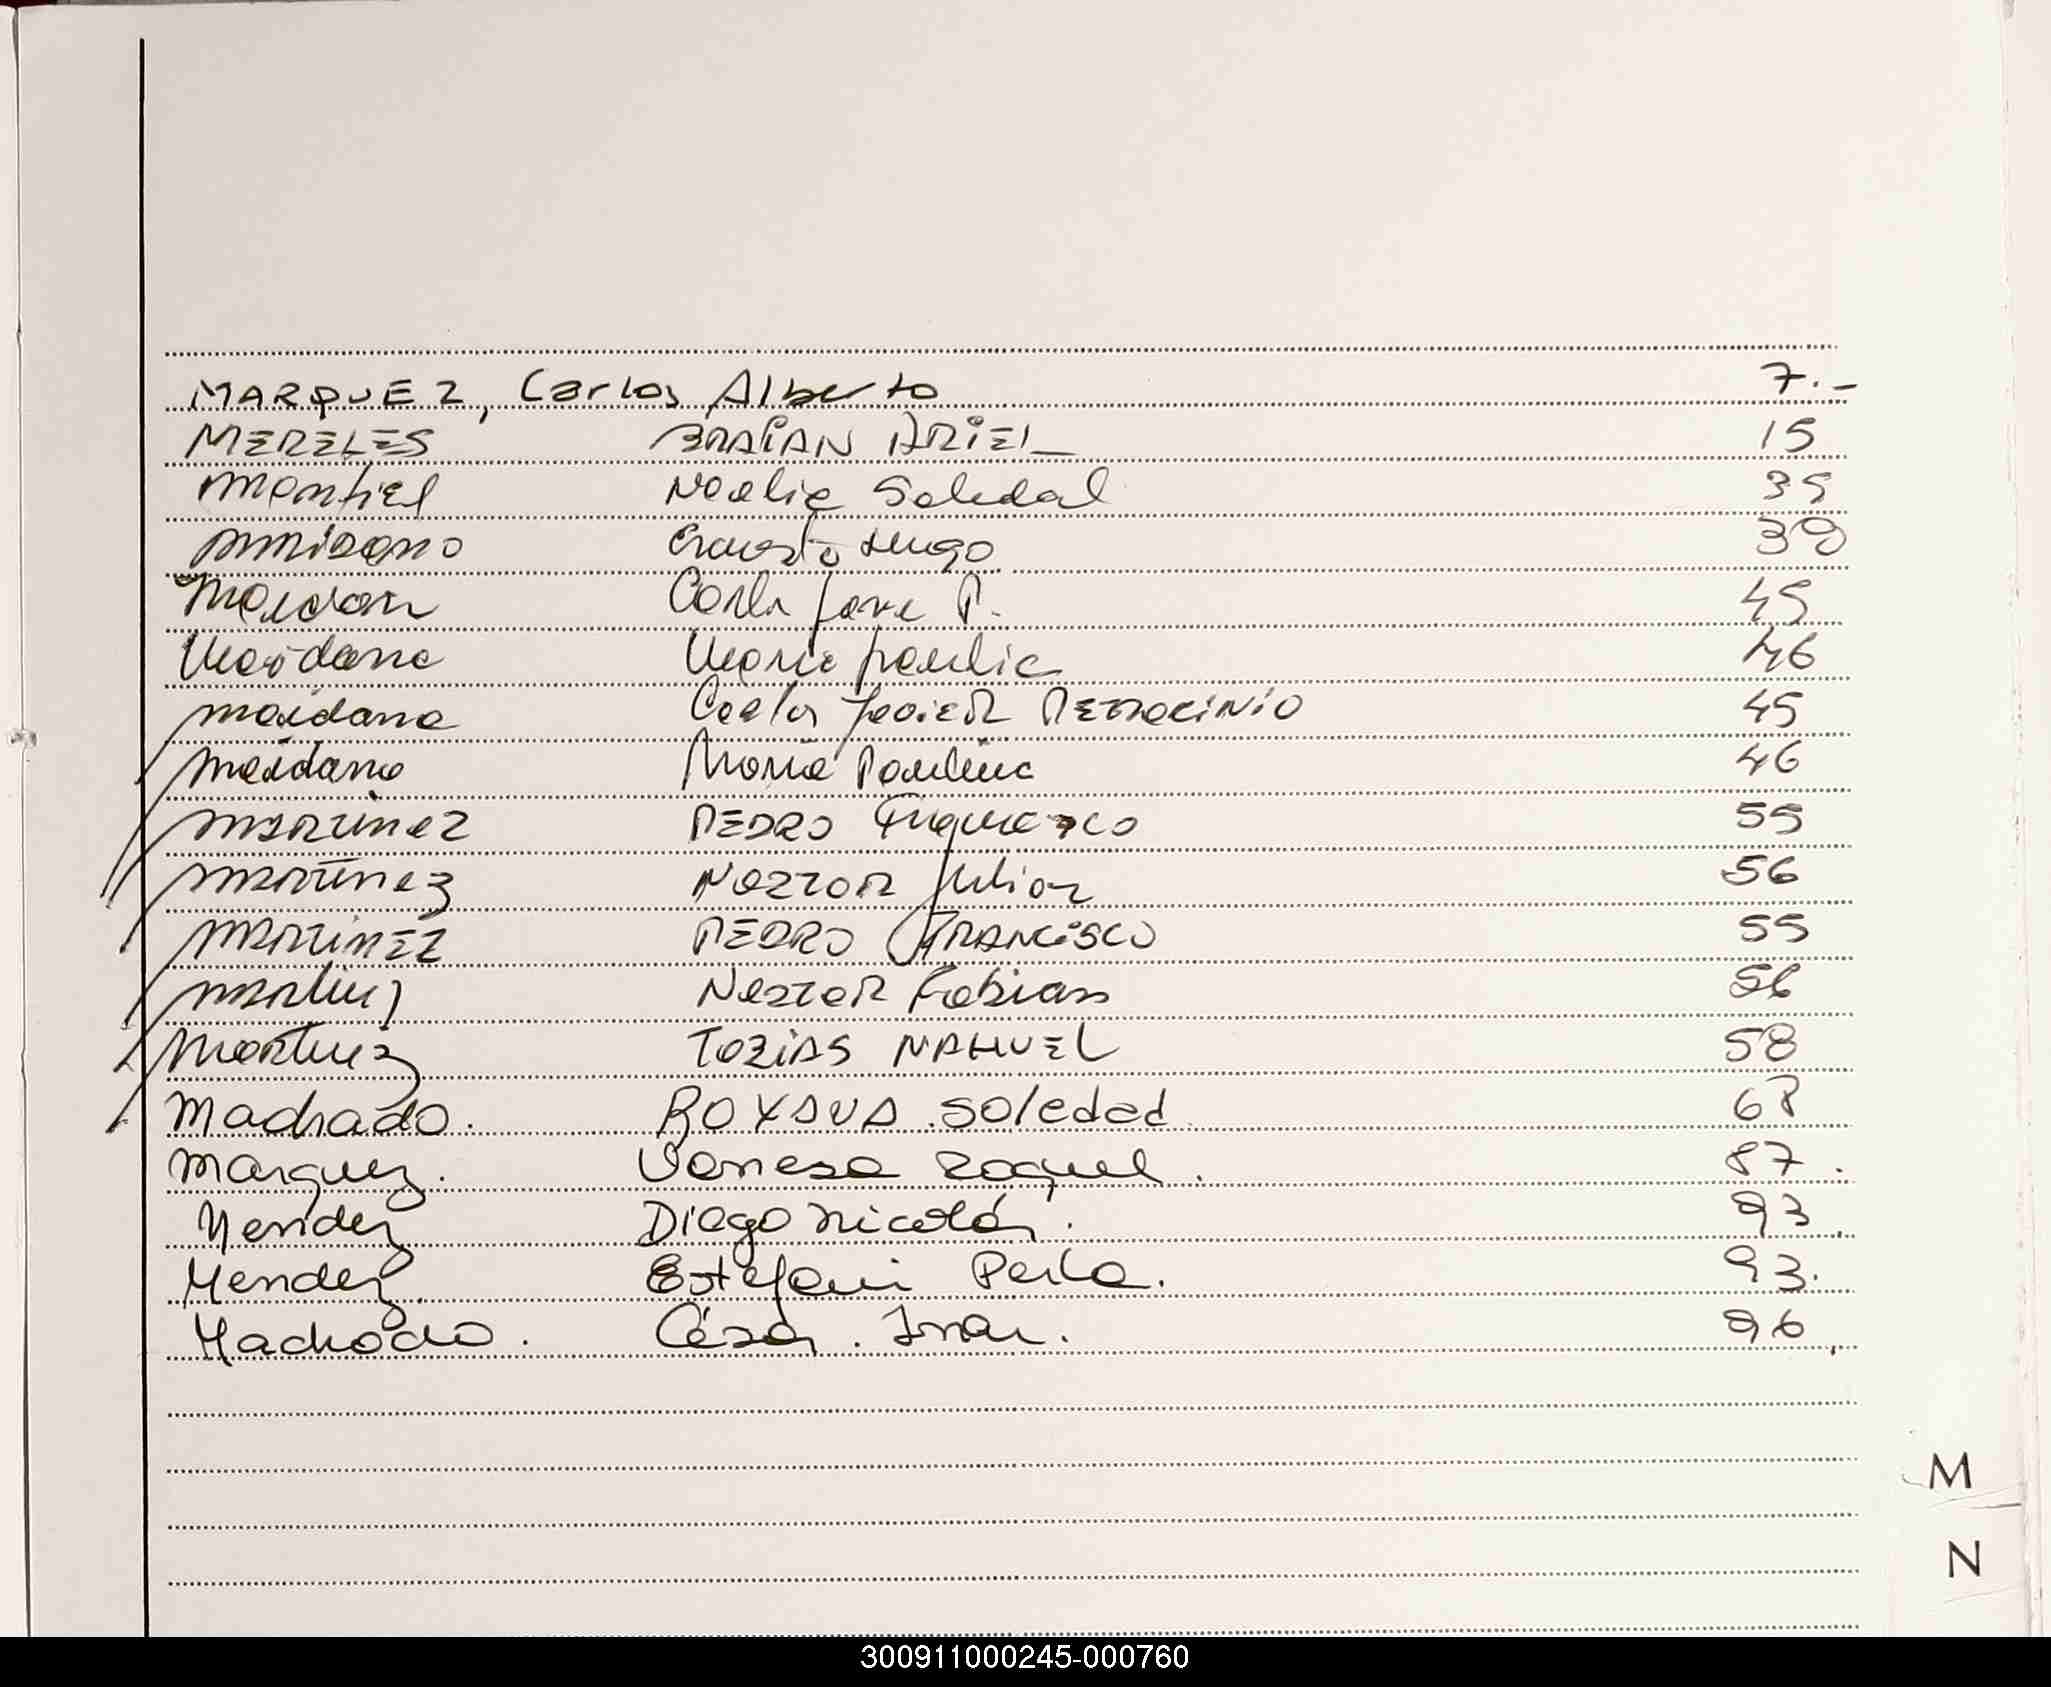 MARQUEZ, Carlos Alberto 7.-
MERELES BRAIAN ARIEL 15
Montiel Noelia Soledad 35
Ernesto Hugo 39
Maidan Carlos P. 45
Maidana Maria Paulia 46
Maidana Carlos Javier Patrocinio 45
Maidana Maria Paulina 46
Martinez PEDRO 55
Martinez Nestor Julian 56
MartinEz PEDRO FRANCISCO 55
Martinez Nestor Fabian 56
Martinez TOBIAS NAHUEL 58
Machado. ROXANA Soledad 68
Marquez. Vanesa Raquel. 87.
Mendez Diego Nicolás. 93.
Mendez Estefani Perla. 93.
Machado. César. Ivan. 96.
M
N
300911000245-000760